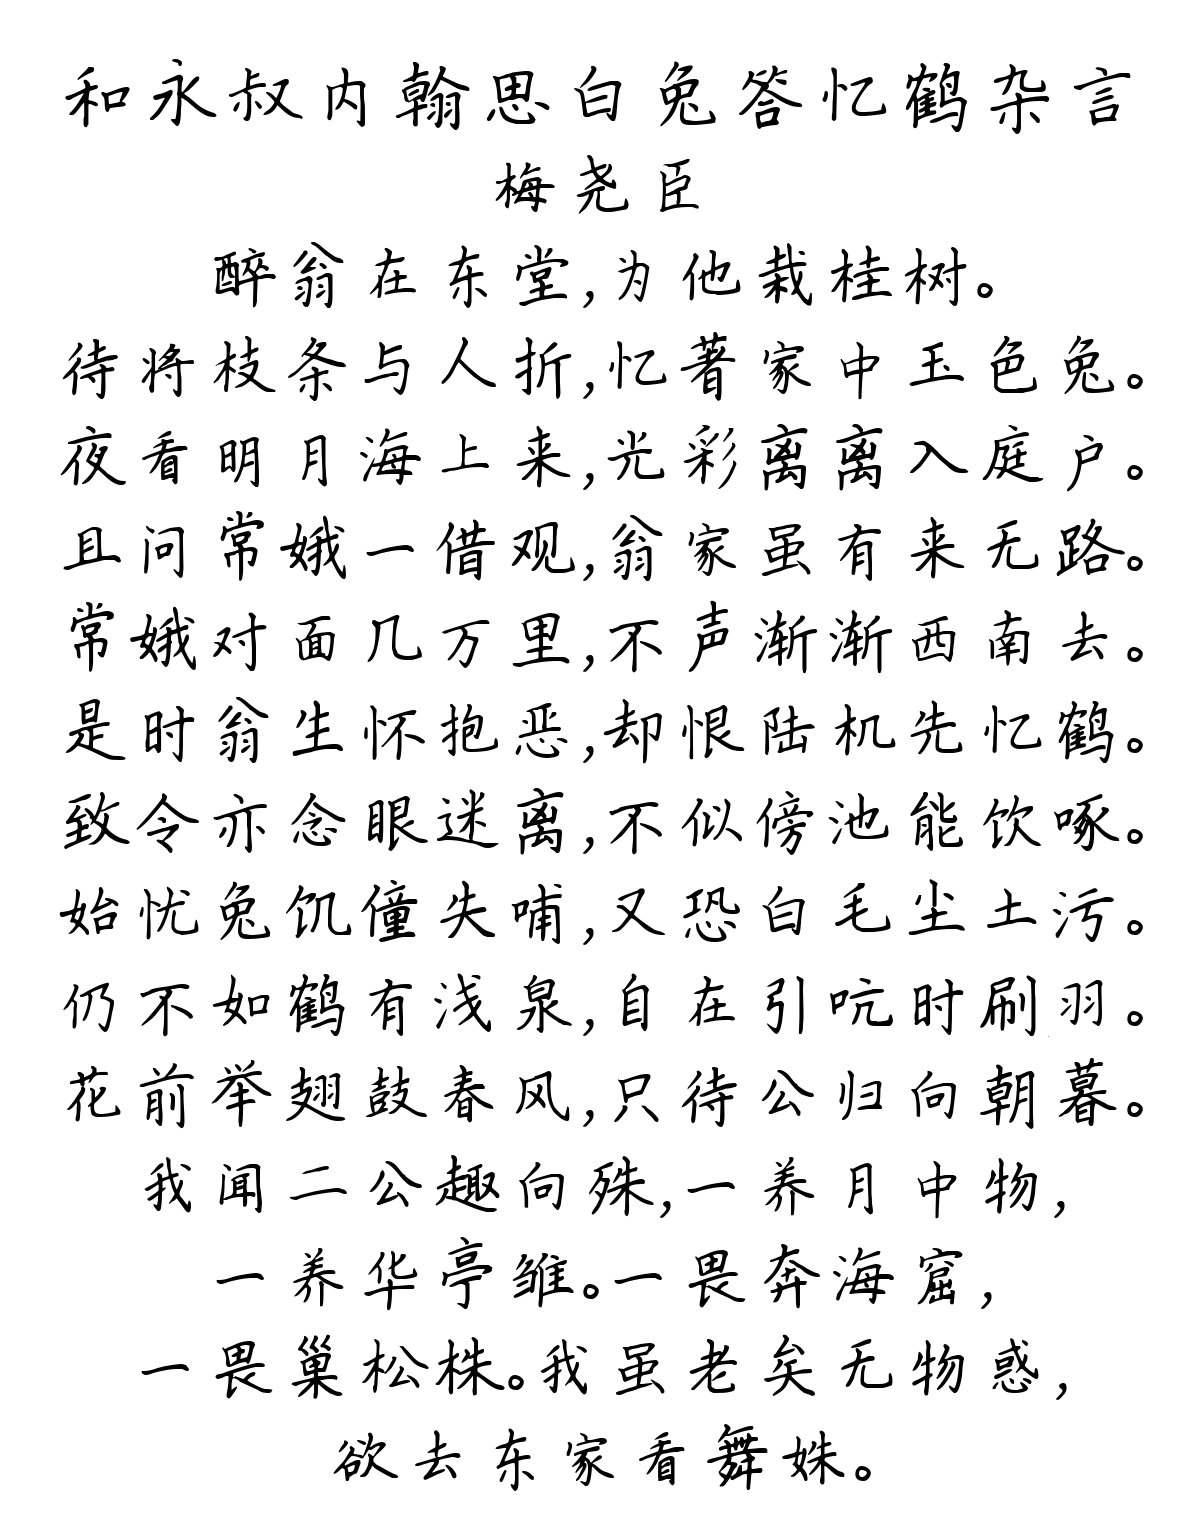 和永叔内翰思白兔答忆鹤杂言
梅尧臣
醉翁在东堂,为他栽桂树。
待将枝条与人折,忆著家中玉色兔。
夜看明月海上来,光彩离离入庭户。
且问常娥一借观,翁家虽有来无路。
常娥对面几万里,不声渐渐西南去。
是时翁生怀抱恶,却恨陆机先忆鹤。
致令亦念眼迷离,不似傍池能饮啄。
始忧兔饥僮失哺,又恐白毛尘土污。
仍不如鹤有浅泉,自在引吭时刷羽。
花前举翅鼓春风,只待公归向朝暮。
我闻二公趣向殊,一养月中物,
一养华亭雏。一畏奔海窟,
一畏巢松株。我虽老矣无物惑,
欲去东家看舞姝。